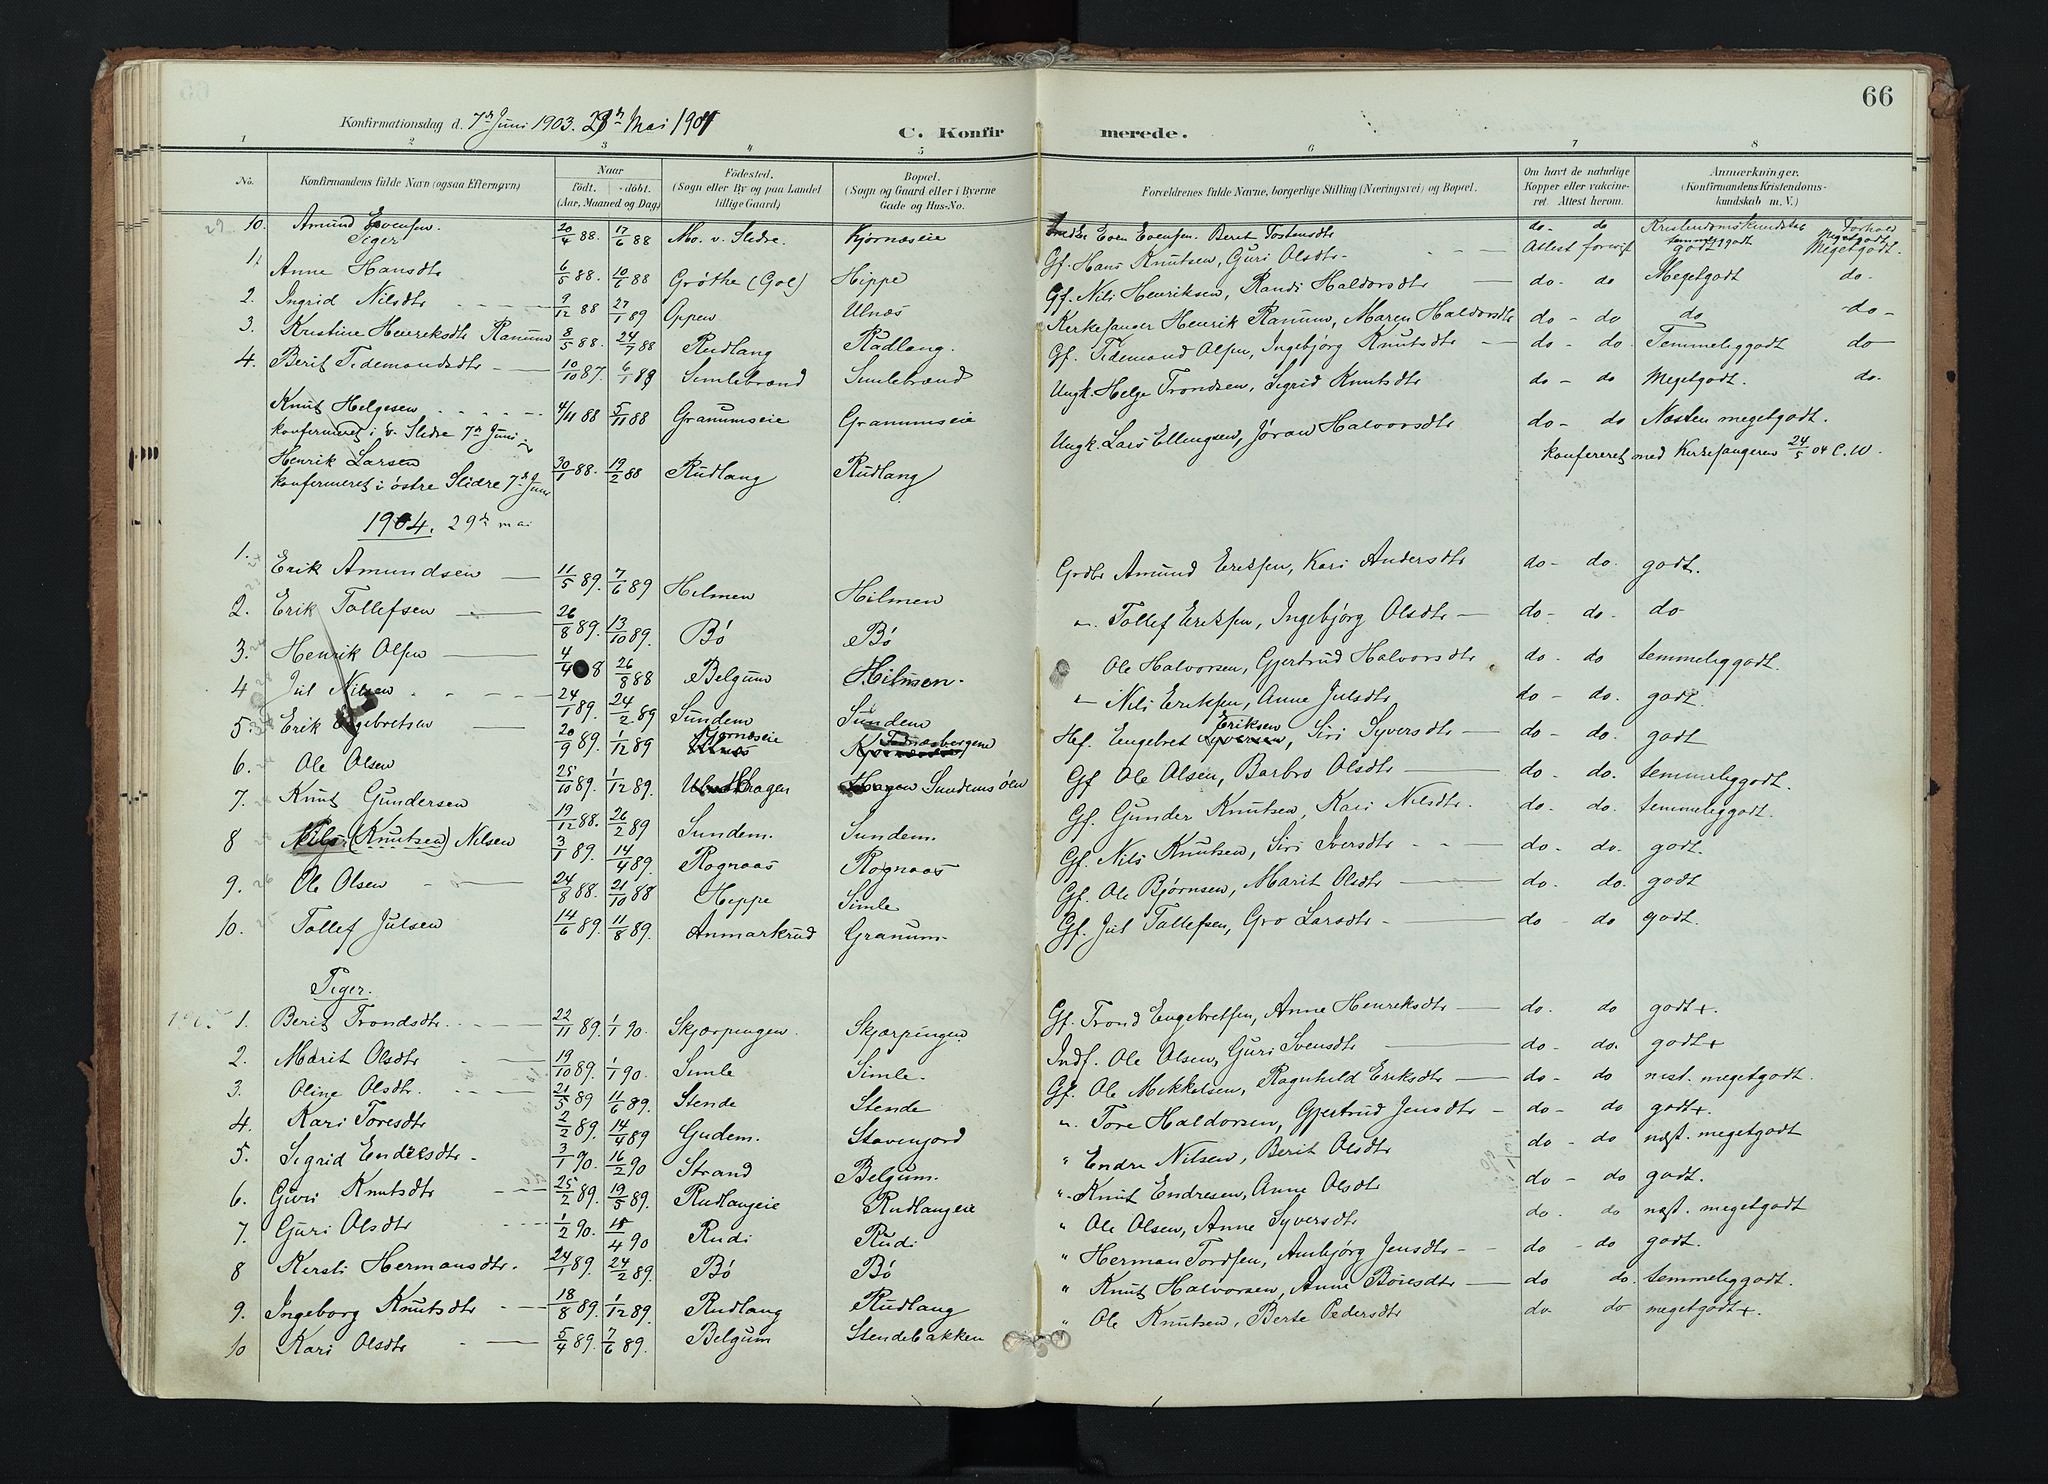 66
Konfirmationsdag d. 7de Juni 1903. 29de Mai 1904
C. Konfirmerede.
1 2 3 4 5 6 7 8
No. Konfirmandens fulde Navn (ogsaa Efternavn) Naar født, døbt. (Aar, Maaned og Dag) Fødested. (Sogn eller By og paa Landet tillige Gaard) Bopæl. (Sogn og Gaard eller i Byerne Gade og Hus-No. Forældrenes fulde Navne, borgerlige Stilling (Næringsvei) og Bopæl. Om havt de naturlige Kopper eller vakcineret. Attest herom. Anmærkninger. (Konfirmandens Kristendomskundskab m. V.)
10. Amund Evensen. 20/4 88. 17/6 88 Mo. v. Slidre. Kjørnæseie Even Evensen. Berit Tostensdtr do- do Kristendomskundskab temmeliggodt Forhold Megetgodt
Piger
1. Anne Hansdtr 6/5 88. 10/6 88 Grøthe (Gol) Hippe Gf. Hans Knutsen, Guri Olsdtr - Attest forevist godt Megetgodt.
2. Ingrid Nilsdtr 9/12 88 27/1 89 Oppen Ulnæs Gf. Nils Henriksen, Randi Haldorsdtr do- do Megetgodt do-
3. Kristine Henriksdtr Ranum 8/5 88. 24/7 88 Rudlang Rudlang. Kirkesanger Henrik Ranum, Maren Haldorsdtr do - do do -do-
4. Berit Tidemandsdtr 10/10 87. 6/1 88 Simlebrænd Simlebrænd Gf. Tidemand Olsen, Ingebjørg Knutsdtr do - do. Temmeliggodt do
Knut Helgesen 4/11 88 5/11 88 Granumseie Granumseie Ungk. Helge Trondsen, Sigrid Knutsdtr do - do Megetgodt. do.
konfirmeret i v. Slidre 7de Juni
Henrik Larsen 30/1 88. 19/2 88 Rudlang Rudlang Ungk. Lars Ellingsen, Jøran Halvorsdtr do- do Næsten megetgodt.
konfirmeret i østre Slidre 7de Juni konfereret med Kirkesangeren 24/5 04 C.W.
1904. 29de mai
1. Erik Amundsen 11/5 89. 7/6 89 Hilmen Hilmen Grdbr Amund Eriksen, Kari Andersdtr do- do. godt.
2. Erik Tollefsen 26/8 89. 13/10 89. Bø Bø Tollef Eriksen, Ingebjørg Olsdtr do- do. do
3. Henrik Olsen 4/4 88 26/8 88 Belgum Hilmen. Ole Halvorsen, Gjertrud Halvorsdtr do- do temmeliggodt.
4 Jul Nilsen 24/1 89. 24/2 89 Sundem Sundem Nils Eriksen, Anne Julsdtr do - do. godt.
5. Erik Engebretsen 20/9 89. 1/12 89 Kjørnæseie Hef. Engebret Eriksen, Siri Syversdtr do - do. godt
6. Ole Olsen 25/10 89. 1/12 89. Hagen Sundemsøen Gf Ole Olsen, Barbro Olsdtr do- do. temmeliggodt.
7. Knut Gundersen 19/12 88. 26/2 89 Sundem. Sundem. Gf. Gunder Knutsen, Kari Nilsdtr. do- do. temmeliggodt.
8 Nils (Knutsen) Nilsen 3/1 89. 14/4 89. Rognaas Rognaas Gf. Nils Knutsen, Siri Iversdtr do- do. godt.
9. Ole Olsen 24/8 88. 21/10 88 Hippe Simle Gf. Ole Bjørnsen, Marit Olsdtr do- do. godt
10. Tollef Julsen 14/6 89. 11/8 89. Anmarkrud Granum- Gf. Jul Tollefsen, Gro Larsdtr - do- do godt.
Piger.
1. Berit Trondsdtr 22/11 89. 1/1 90. Skjærpingen. Skjærpingen Gf. Trond Engebretsen, Anne Henriksdtr do- do godt+.
2. Marit Olsdtr 19/10 89. 1/1 90. Simle Simle. Indf. Ole Olsen, Guri Svensdtr do- do. godt+
3. Oline Olsdtr. 21/5 89 11/6 89. Stende Stende Gf. Ole Mikkelsen, Ragnhild Eriksdtr do- do næst. megetgodt.
4. Kari Toresdtr 2/2 89. 14/4 89 Gudem. Stavenjord Tore Haldorsen, Gjertrud Jensdtr do- do godt+.
5. Sigrid Endresdtr 3/1 90. 16/2 90 Strand Belgum. " Endre Nilsen, Berit Olsdtr do - do næst. megetgodt
6. Guri Knutsdtr 25/2 89. 19/5 89. Rudlangeie Rudlangeie " Knut Endresen, Anne Olsdtr do- do godt.
7. Guri Olsdtr 1/2 90. 15/4 90 Rudi Rudi " Ole Olsen, Anne Syversdtr do. do næst. megetgodt
8 Kersti Hermansdtr. 24/1 89. 24/2 89. Bø Bø " Herman Tordsen, Ambjørg Jensdtr do - do godt.
9. Ingeborg Knutsdtr 18/8 89. 1/12 89. Rudlang Rudlang " Knut Halvorsen, Anne Boresdtr do do. temmeliggodt.
10 Kari Olsdtr 5/4 89. 7/6 89. Belgum Stendebakken " Ole Knutsen, Berte Pedersdtr do. do megetgodt+.